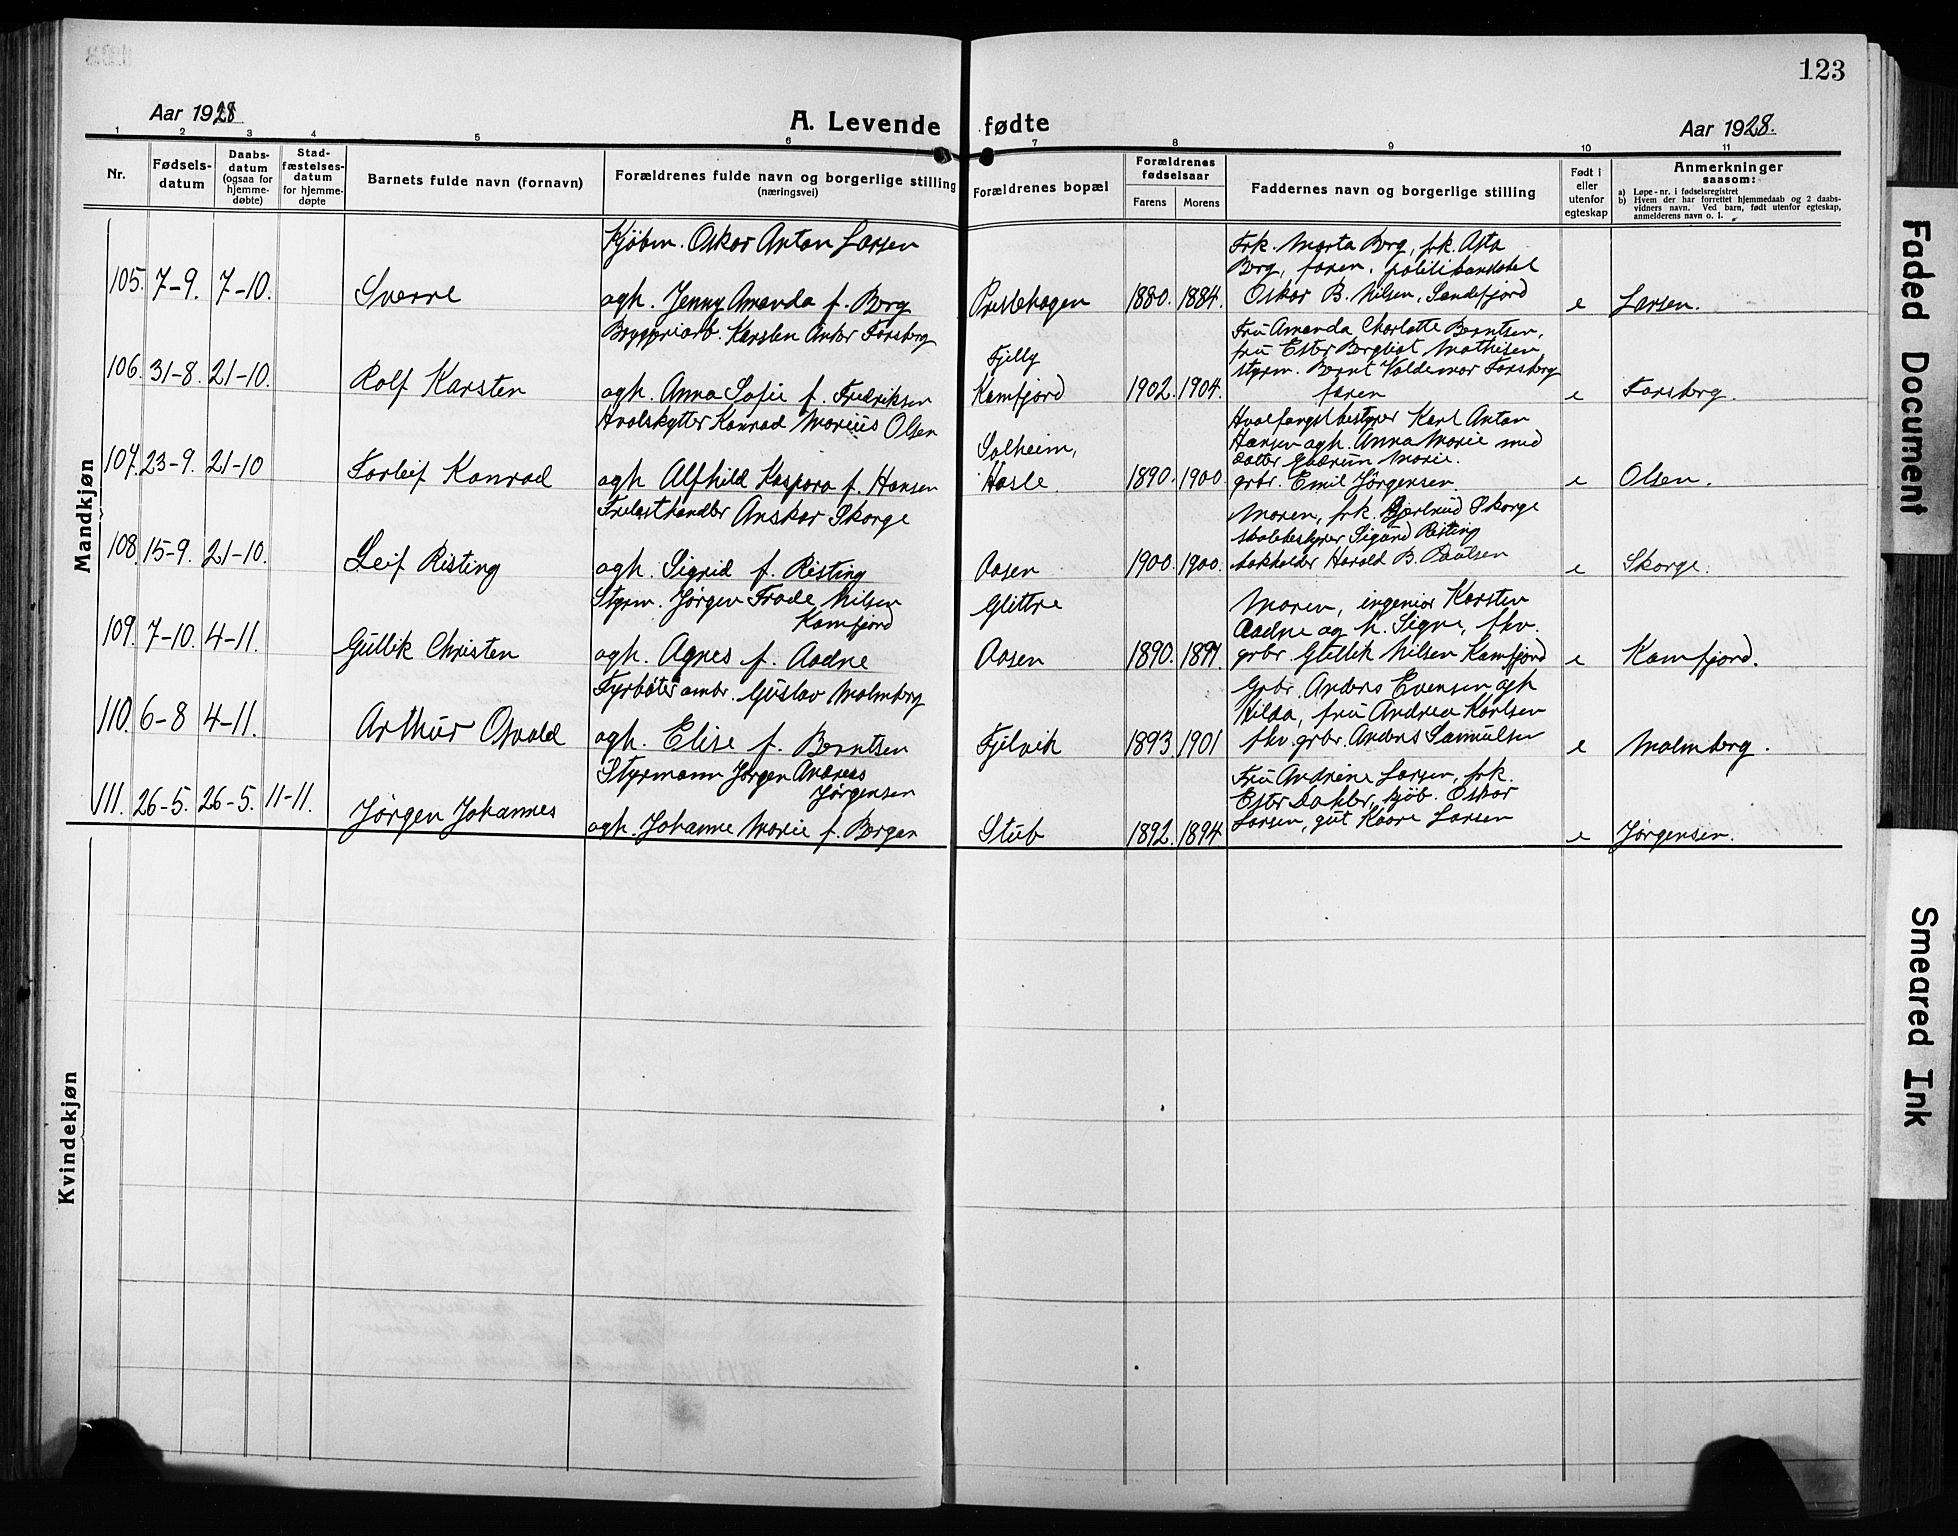 123
Aar 1928
A. Levende fødte
Aar 1928.
1 2 3 4 5 6 7 8 9 10 11
Nr.
Fødsels-
datum
Daabs-
datum
(ogsaa for
hjemme-
døbte)
Stad-
fæstelses-
datum
for hjemme-
døpte
Barnets fulde navn (fornavn)
Forældrenes fulde navn og borgerlige stilling
(næringsvei)
Forældrenes bopæl
Forældrenes
fødselsaar
Farens Morens
Faddernes navn og borgerlige stilling
Født i
eller
utenfor
egteskap
Anmerkninger
saasom:
a) Løpe-nr. i fødselsregistret
b) Hvem der har forrettet hjemmedaab og 2 daabs-
vidners navn. Ved barn, født utenfor egteskap,
anmelderens navn o. l.
Mandkjøn
105. 7-9. 7-10. Sverre
Kjøbm. Oskar Anton Larsen
ogh. Jenny Amanda f. Berg
Prestehagen 1880. 1884.
Frk. Marta Berg, frk. Asta
Berg, faren, politikonstabel
Oskar B. Nilsen, Sandfjord
e Larsen.
106. 31-8. 21-10. Rolf Karsten
Bryggeriarb. Karsten Anker Forsberg
ogh. Anna Sofie f. Fredriksen
Fjelly
Kamfjord 1902. 1904.
Fru Amanda Charlotte Berntsen,
fru Ester Bergliot Mathisen
styrm. Bernt Valdemar Forsberg
faren
e Forsberg.
107. 23-9. 21-10 Torleif Konrad
Hvalskytter Konrad Marius Olsen
ogh Alfhild Kaspara f. Hansen
Solheim,
Hasle. 1890. 1900.
Hvalfangstbestyrer Karl Anton
Hansen ogh. Anna Marie med
datter Gudrun Marie.
grbr. Emil Jørgensen.
e Olsen.
108 15-9. 21-10. Leif Risting
Trelasthandler Anskar Skorge
ogh. Sigrid f. Risting
Aasen 1900. 1900.
Moren, frk. Gjærtrud Skorge
skolebestyrer Sigurd Risting
bokholder Harald B. Paulsen
e Skorge.
109. 7-10. 4-11. Gullik Christen
Styrm. Jørgen Frode Nilsen
Kamfjord
ogh. Agnes f. Aadne
Glittre
Aasen 1890. 1897.
Moren, ingeniør Karsten
Aadne og h. Signe, fhv.
grbr Gullik Nilsen Kamfjord
e Kamfjord.
110. 6-8 4-11. Arthur Osvald
Fyrbøter ombr. Gustav Malmberg
ogh. Elise f. Berntsen
Fjelvik 1893. 1901
Grbr. Anders Evensen ogh
Hilda, fru Andrea Karlsen
fhv. grbr. Anders Samuelsen
e Malmberg.
111. 26-5. 26-5. 11-11. Jørgen Johannes
Styrmann Jørgen Andreas
Jørgensen
ogh. Johanne Marie f. Bergan
Stub 1892. 1894
Fru Andrine Larsen, frk.
Ester Dahler, kjøb. Oskar
Larsen, gut Kaare Larsen
e Jørgensen.
Kvindekjøn
Faded Document
Smeared Ink